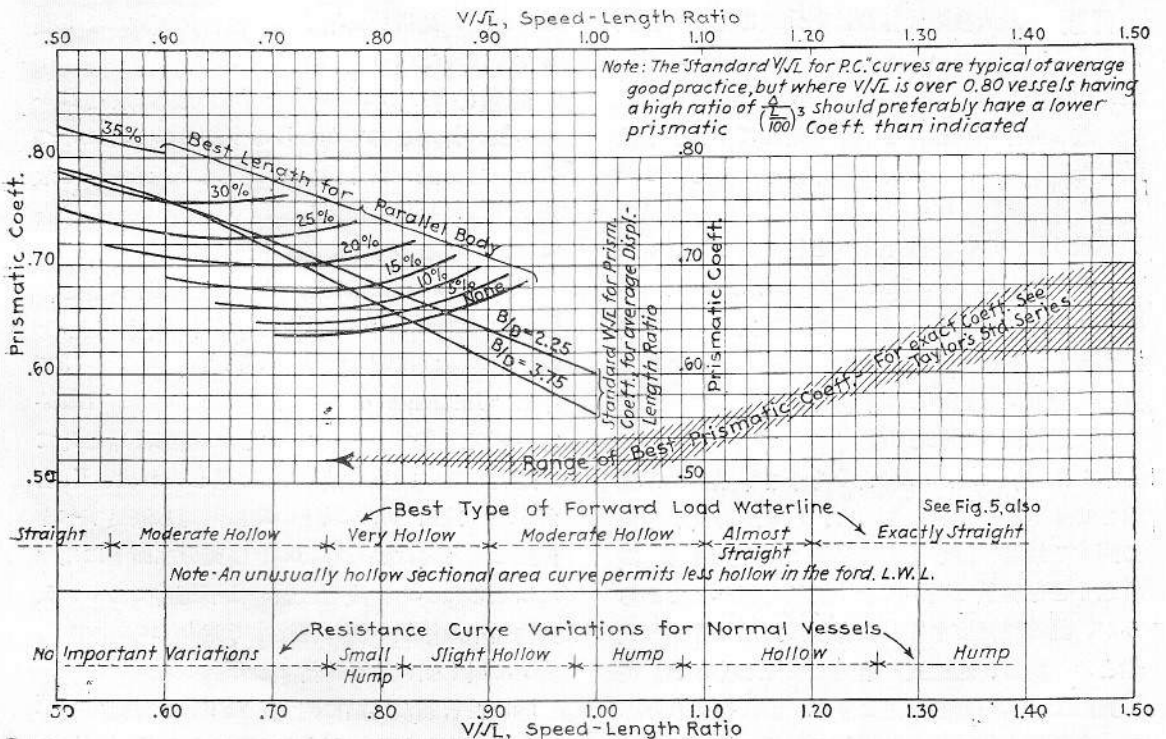 V/√L, Speed-Length Ratio
.50 .60 .70 .80 .90 1.00 1.10 1.20 1.30 1.40 1.50
Note: The "Standard V/√L for P.C." curves are typical of average
good practice, but where V/√L is over 0.80 vessels having
a high ratio of Δ/(L/100)3 should preferably have a lower
prismatic Coeft. than indicated
Prismatic Coeft.
.80
.70
.60
.50
35%
30%
25%
20%
15%
10%
5%
None
Best Length for Parallel Body
B/D=2.25
B/D=3.75
Standard V/√L for Prism.
Coeft., for average Displ.-
Length Ratio
Prismatic Coeft.
.80
.70
.60
.50
Range of Best Prismatic Coeft.- For exact Coeft. See
Taylor's Std. Series
Best Type of Forward Load Waterline
See Fig.5, also
Straight Moderate Hollow Very Hollow Moderate Hollow Almost Straight Exactly Straight
Note-An unusually hollow sectional area curve permits less hollow in the ford. L.W.L.
Resistance Curve Variations for Normal Vessels
No Important Variations Small Hump Slight Hollow Hump Hollow Hump
.50 .60 .70 .80 .90 1.00 1.10 1.20 1.30 1.40 1.50
V/√L, Speed-Length Ratio